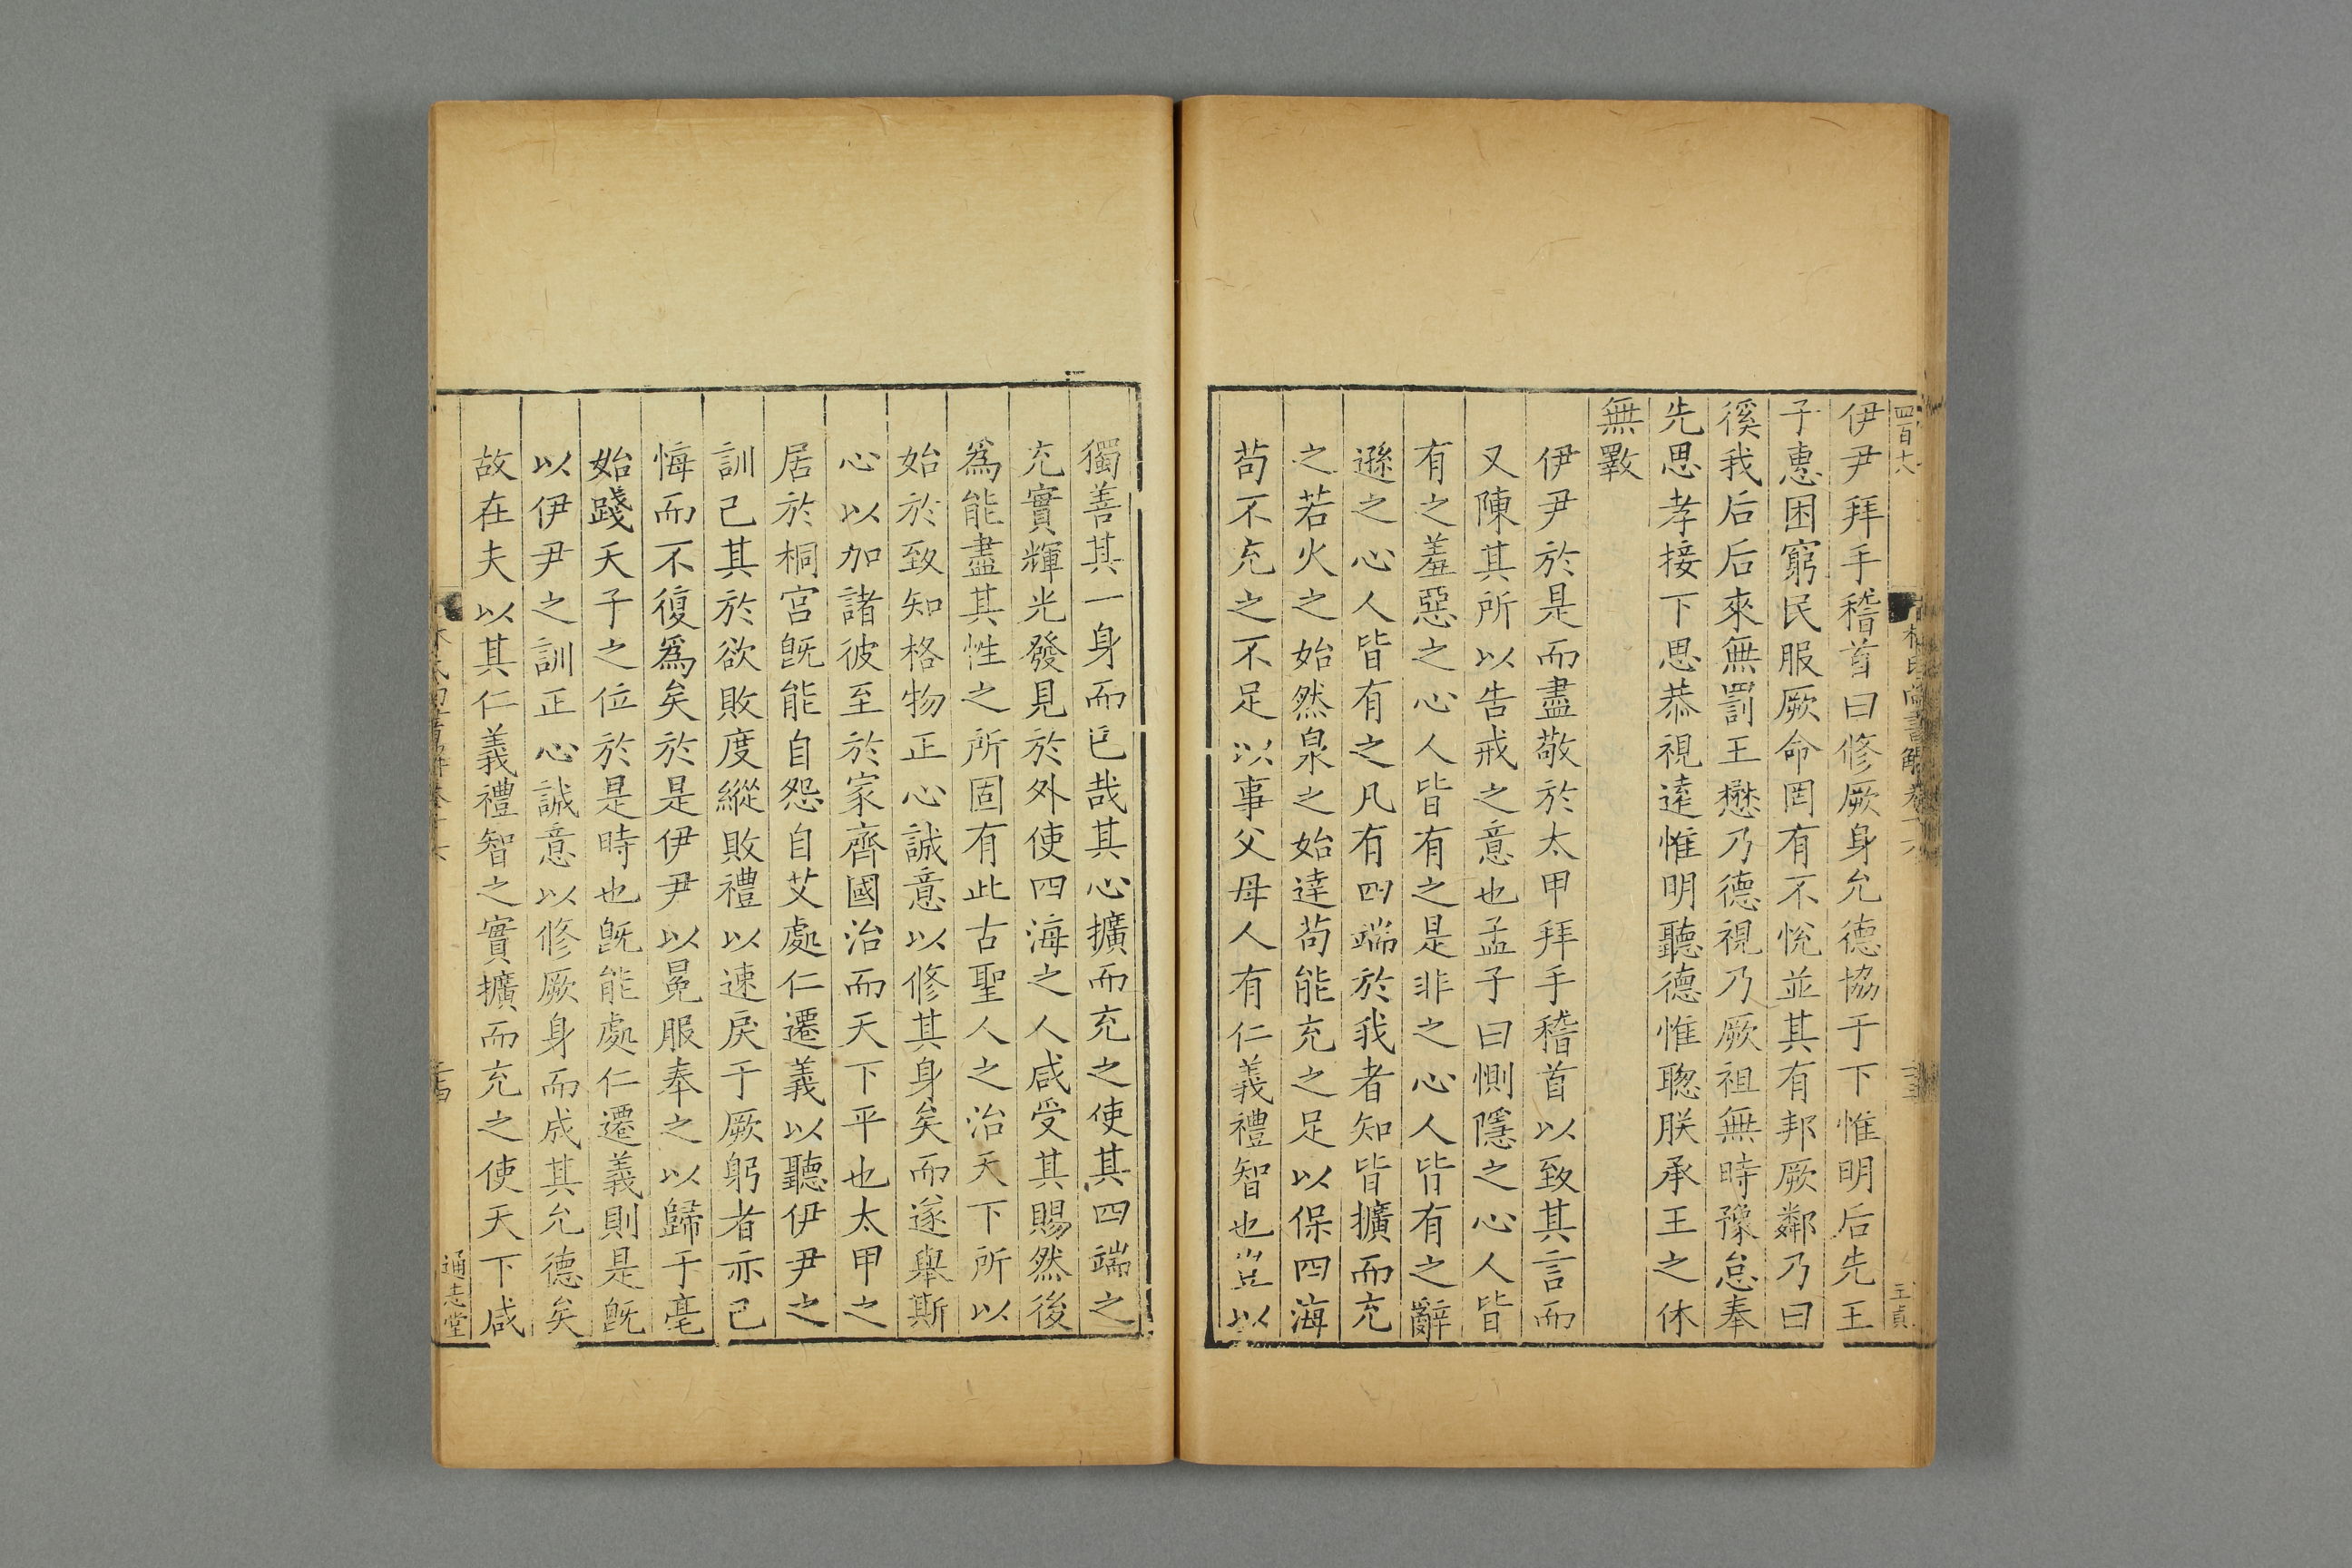 四百十八
林氏尚書解卷十六
王貞
伊尹拜手稽首曰修厥身允德協于下惟明后先王
子惠困窮民服厥命罔有不悅並其有邦厥鄰乃曰
徯我后后來無罰王懋乃德視乃厥祖無時豫怠奉
先思孝接下思恭視遠惟明聽德惟聦朕承王之休
無斁
伊尹於是而盡敬於太甲拜手稽首以致其言而
又陳其所以告戒之意也孟子曰惻隱之心人皆
有之羞惡之心人皆有之是非之心人皆有之辭
遜之心人皆有之凡有四端於我者知皆擴而充
之若火之始然泉之始達茍能充之足以保四海
茍不充之不足以事父母人有仁義禮智也豈以
獨善其一身而已哉其心擴而充之使其四端之
充實輝光發見於外使四海之人咸受其賜然後
爲能盡其性之所固有此古聖人之治天下所以
始於致知格物正心誠意以修其身矣而遂舉斯
心以加諸彼至於家齊國治而天下平也太甲之
居於桐宫旣能自怨自艾處仁遷義以聽伊尹之
訓己其於欲敗度縱敗禮以速戾于厥躬者亦已
悔而不復爲矣於是伊尹以冕服奉之以歸于亳
始踐天子之位於是時也旣能處仁遷義則是旣
以伊尹之訓正心誠意以修厥身而成其允德矣
故在夫以其仁義禮智之實擴而充之使天下咸
通志堂